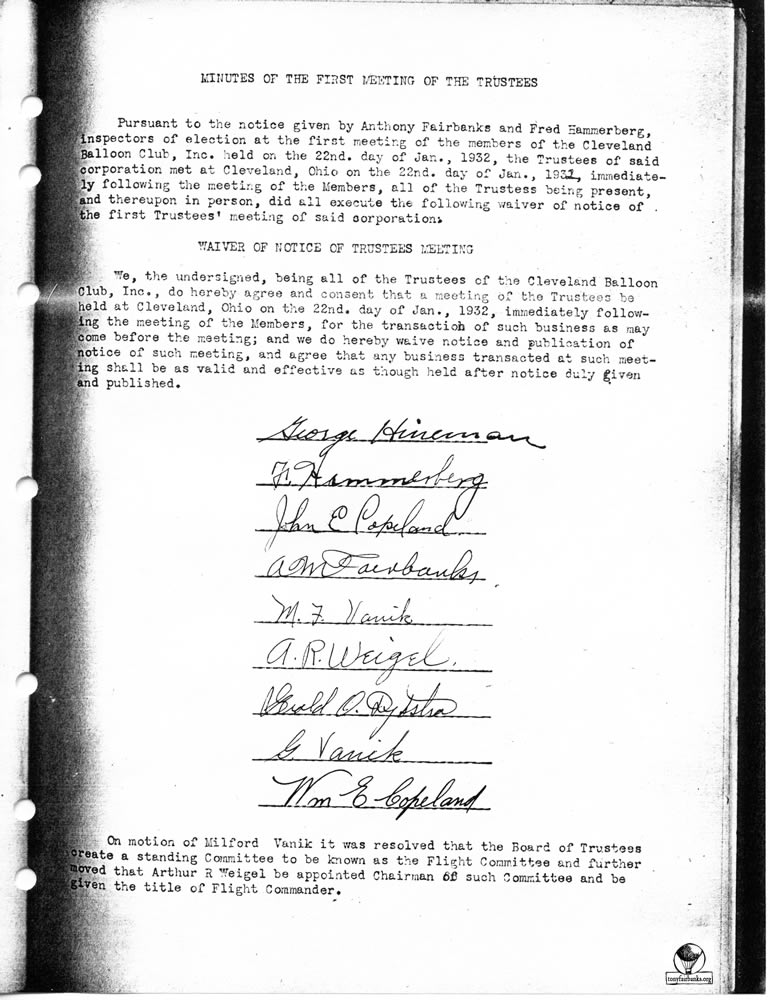 MINUTES OF THE FIRST MEETING OF THE TRUSTEES
Pursuant to the notice given by Anthony Fairbanks and Fred Hammerberg,
inspectors of election at the first meeting of the members of the Cleveland
Balloon Club, Inc. held on the 22nd. day of Jan., 1932, the Trustees of said
corporation met at Cleveland, Ohio on the 22nd. day of Jan., 1932, immediate-
ly following the meeting of the Members, all of the Trustess being present,
and thereupon in person, did all execute the following waiver of notice of
the first Trustees' meeting of said corporation:
WAIVER OF NOTICE OF TRUSTEES MEETING
We, the undersigned, being all of the Trustees of the Cleveland Balloon
Club, Inc., do hereby agree and consent that a meeting of the Trustees be
held at Cleveland, Ohio on the 22nd. day of Jan., 1932, immediately follow-
ing the meeting of the Members, for the transaction of such business as may
come before the meeting; and we do hereby waive notice and publication of
notice of such meeting, and agree that any business transacted at such meet-
ing shall be as valid and effective as though held after notice duly given
and published.
George Hineman
F. Hammerberg
John E Copeland
A M Fairbanks
M. F. Vanik
A. R. Weigel.
Gerald O. Dykstra
G Vanik
Wm E Copeland
On motion of Milford Vanik it was resolved that the Board of Trustees
create a standing Committee to be known as the Flight Committee and further
moved that Arthur R Weigel be appointed Chairman of such Committee and be
given the title of Flight Commander.
tonyfairbanks.org